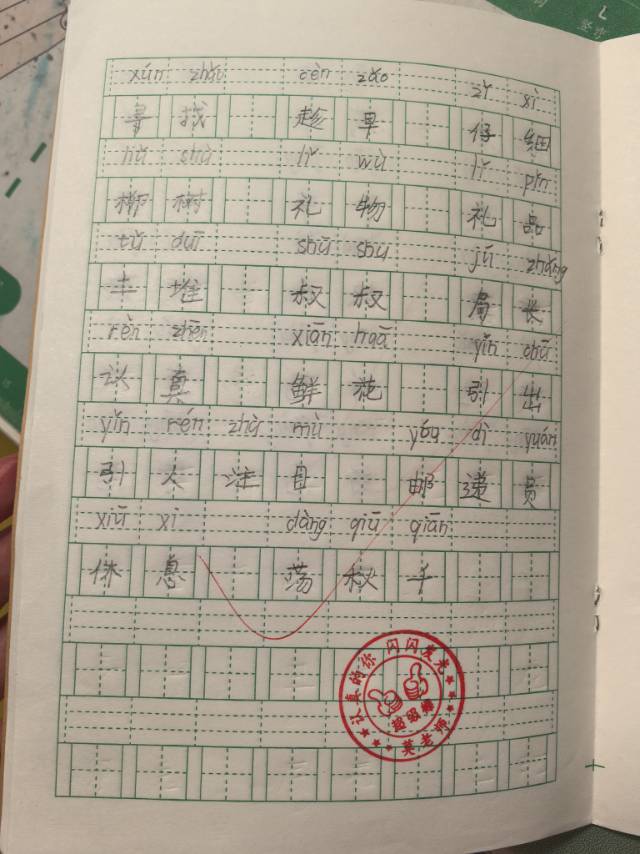 xún zhǎo cèn zǎo zǐ xì
寻找 趁早 仔细
liǔ shù lǐ wù lǐ pǐn
柳树 礼物 礼品
tǔ duī shū shu jú zhǎng
土堆 叔叔 局长
rèn zhēn xiān huā yǐn chū
认真 鲜花 引出
yǐn rén zhù mù yóu dì yuán
引人注目 邮递员
xiū xi dàng qiū qiān
休息 荡秋千
认真的你 闪闪发光
超级棒
莫老师